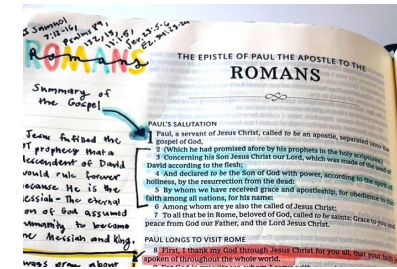 2 Samuel
7:12-16,
Psalms 89,
132,
Jer. 23:5-6
Ez. 34:23-24
ROMANS
Romans
Summary of
the Gospel
Jesus fulfilled the
OT prophecy that a
descendent of David
would rule forever
because He is the
Messiah - The eternal
Son of God assumed
humanity to become
the Messiah and King.
always about
THE EPISTLE OF PAUL THE APOSTLE TO THE
ROMANS
PAUL'S SALUTATION
Paul, a servant of Jesus Christ, called to be an apostle, separated unto the
gospel of God,
2 (Which he had promised afore by his prophets in the holy scriptures,)
3 Concerning his Son Jesus Christ our Lord, which was made of the seed of
David according to the flesh;
4 And declared to be the Son of God with power, according to the spirit of
holiness, by the resurrection from the dead:
5 By whom we have received grace and apostleship, for obedience to the
faith among all nations, for his name:
6 Among whom are ye also the called of Jesus Christ:
7 To all that be in Rome, beloved of God, called to be saints: Grace to you and
peace from God our Father, and the Lord Jesus Christ.
PAUL LONGS TO VISIT ROME
8 First, I thank my God through Jesus Christ for you all, that your faith is
spoken of throughout the whole world.
9 For God is my witness, whom I serve with